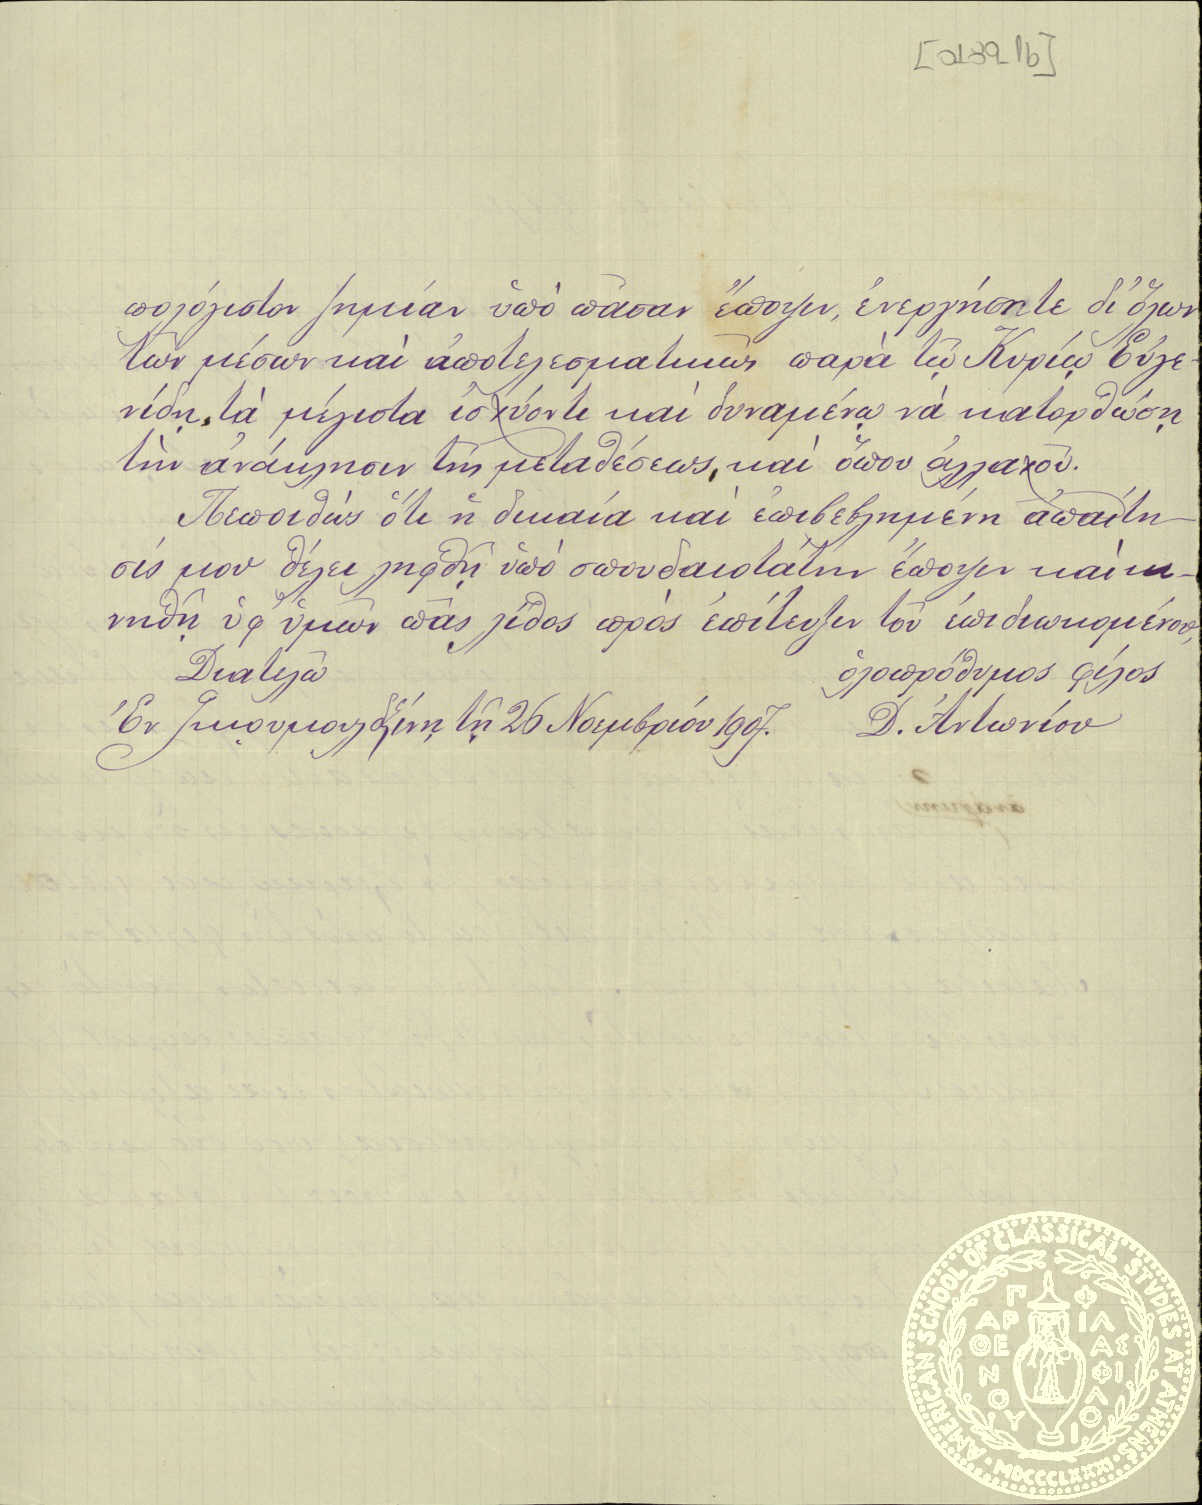 [0139_1b]
πολόγιστον ζημίαν ὑπὸ πᾶσαν ἔποψιν, ἐνεργήσητε δι' ὅλων
τῶν μέσων καὶ ἀποτελεσματικῶς παρὰ τῷ Κυρίῳ Εὐγε-
νίδῃ, τὰ μέγιστα ἰσχύοντι καὶ δυναμένῳ νὰ κατορθώσῃ
τὴν ἀνάκλησιν τῆς μεταθέσεως, καὶ ὅπου ἀλλαχοῦ.
Πεποιθὼς ὅτι ἡ δικαία καὶ ἐπιβεβλημένη ἀπαίτη-
σίς μου θέλει ληφθῆ ὑπὸ σπουδαιοτάτην ἔποψιν καὶ κι-
νηθῇ ὑφ' ὑμῶν πᾶς λίθος πρὸς ἐπίτευξιν τοῦ ἐπιδιωκομένου,
Διατελῶ
ὁλοπρόθυμος φίλος
Ἐν Γκιουμουλζίνῃ τῇ 26 Νοεμβρίου 1907.
Δ. Ἀντωνίου
AMERICAN SCHOOL OF CLASSICAL STUDIES AT ATHENS
ΠΑΡΘΕΝΟΥ ΦΙΛΑΣ ΦΙΛΟΙ
MDCCCLXXXI